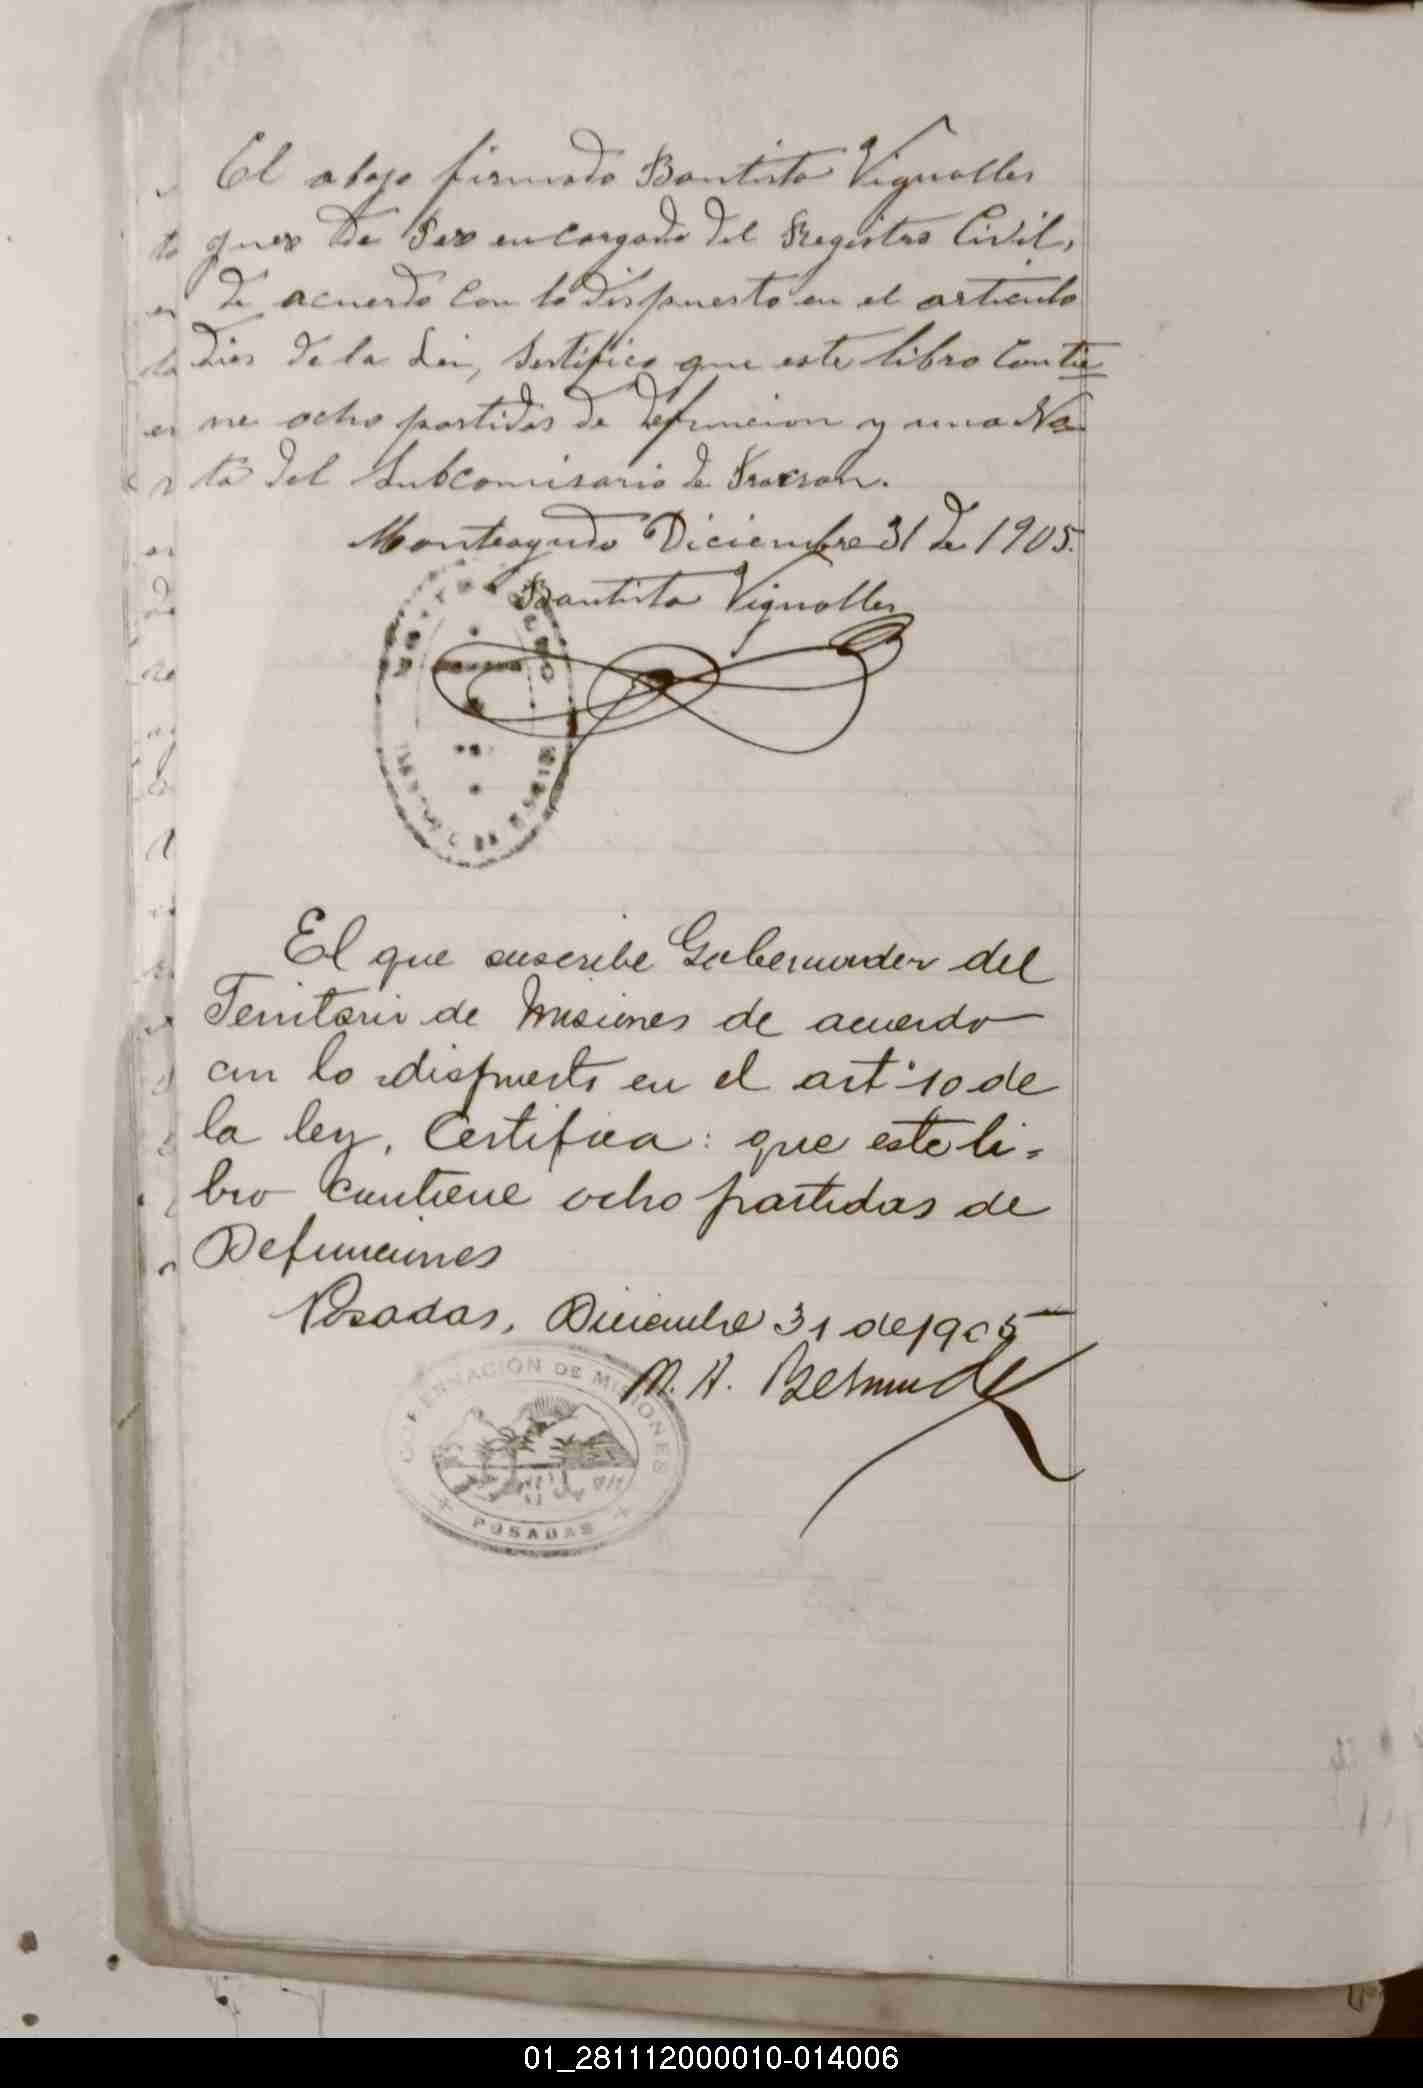 El abajo firmado Bautista Vignolles
Juez de Paz encargado del Registro Civil,
de acuerdo con lo dispuesto en el articulo
Dies de la Lei, Sertifico que este libro Contie
ne ocho partidas de defuncion y una No
ta del Subcomisario de Fracran.
Monteagudo Diciembre 31 de 1905.
Bautista Vignolles
El que suscribe Gobernador del
Territorio de Misiones de acuerdo
con lo dispuesto en el art. 10 de
la ley, Certifica: que este li-
bro contiene ocho partidas de
Defunciones
Posadas, Diciembre 31 de 1905
M. A. Bermudez
GOBERNACIÓN DE MISIONES
POSADAS
01_281112000010-014006